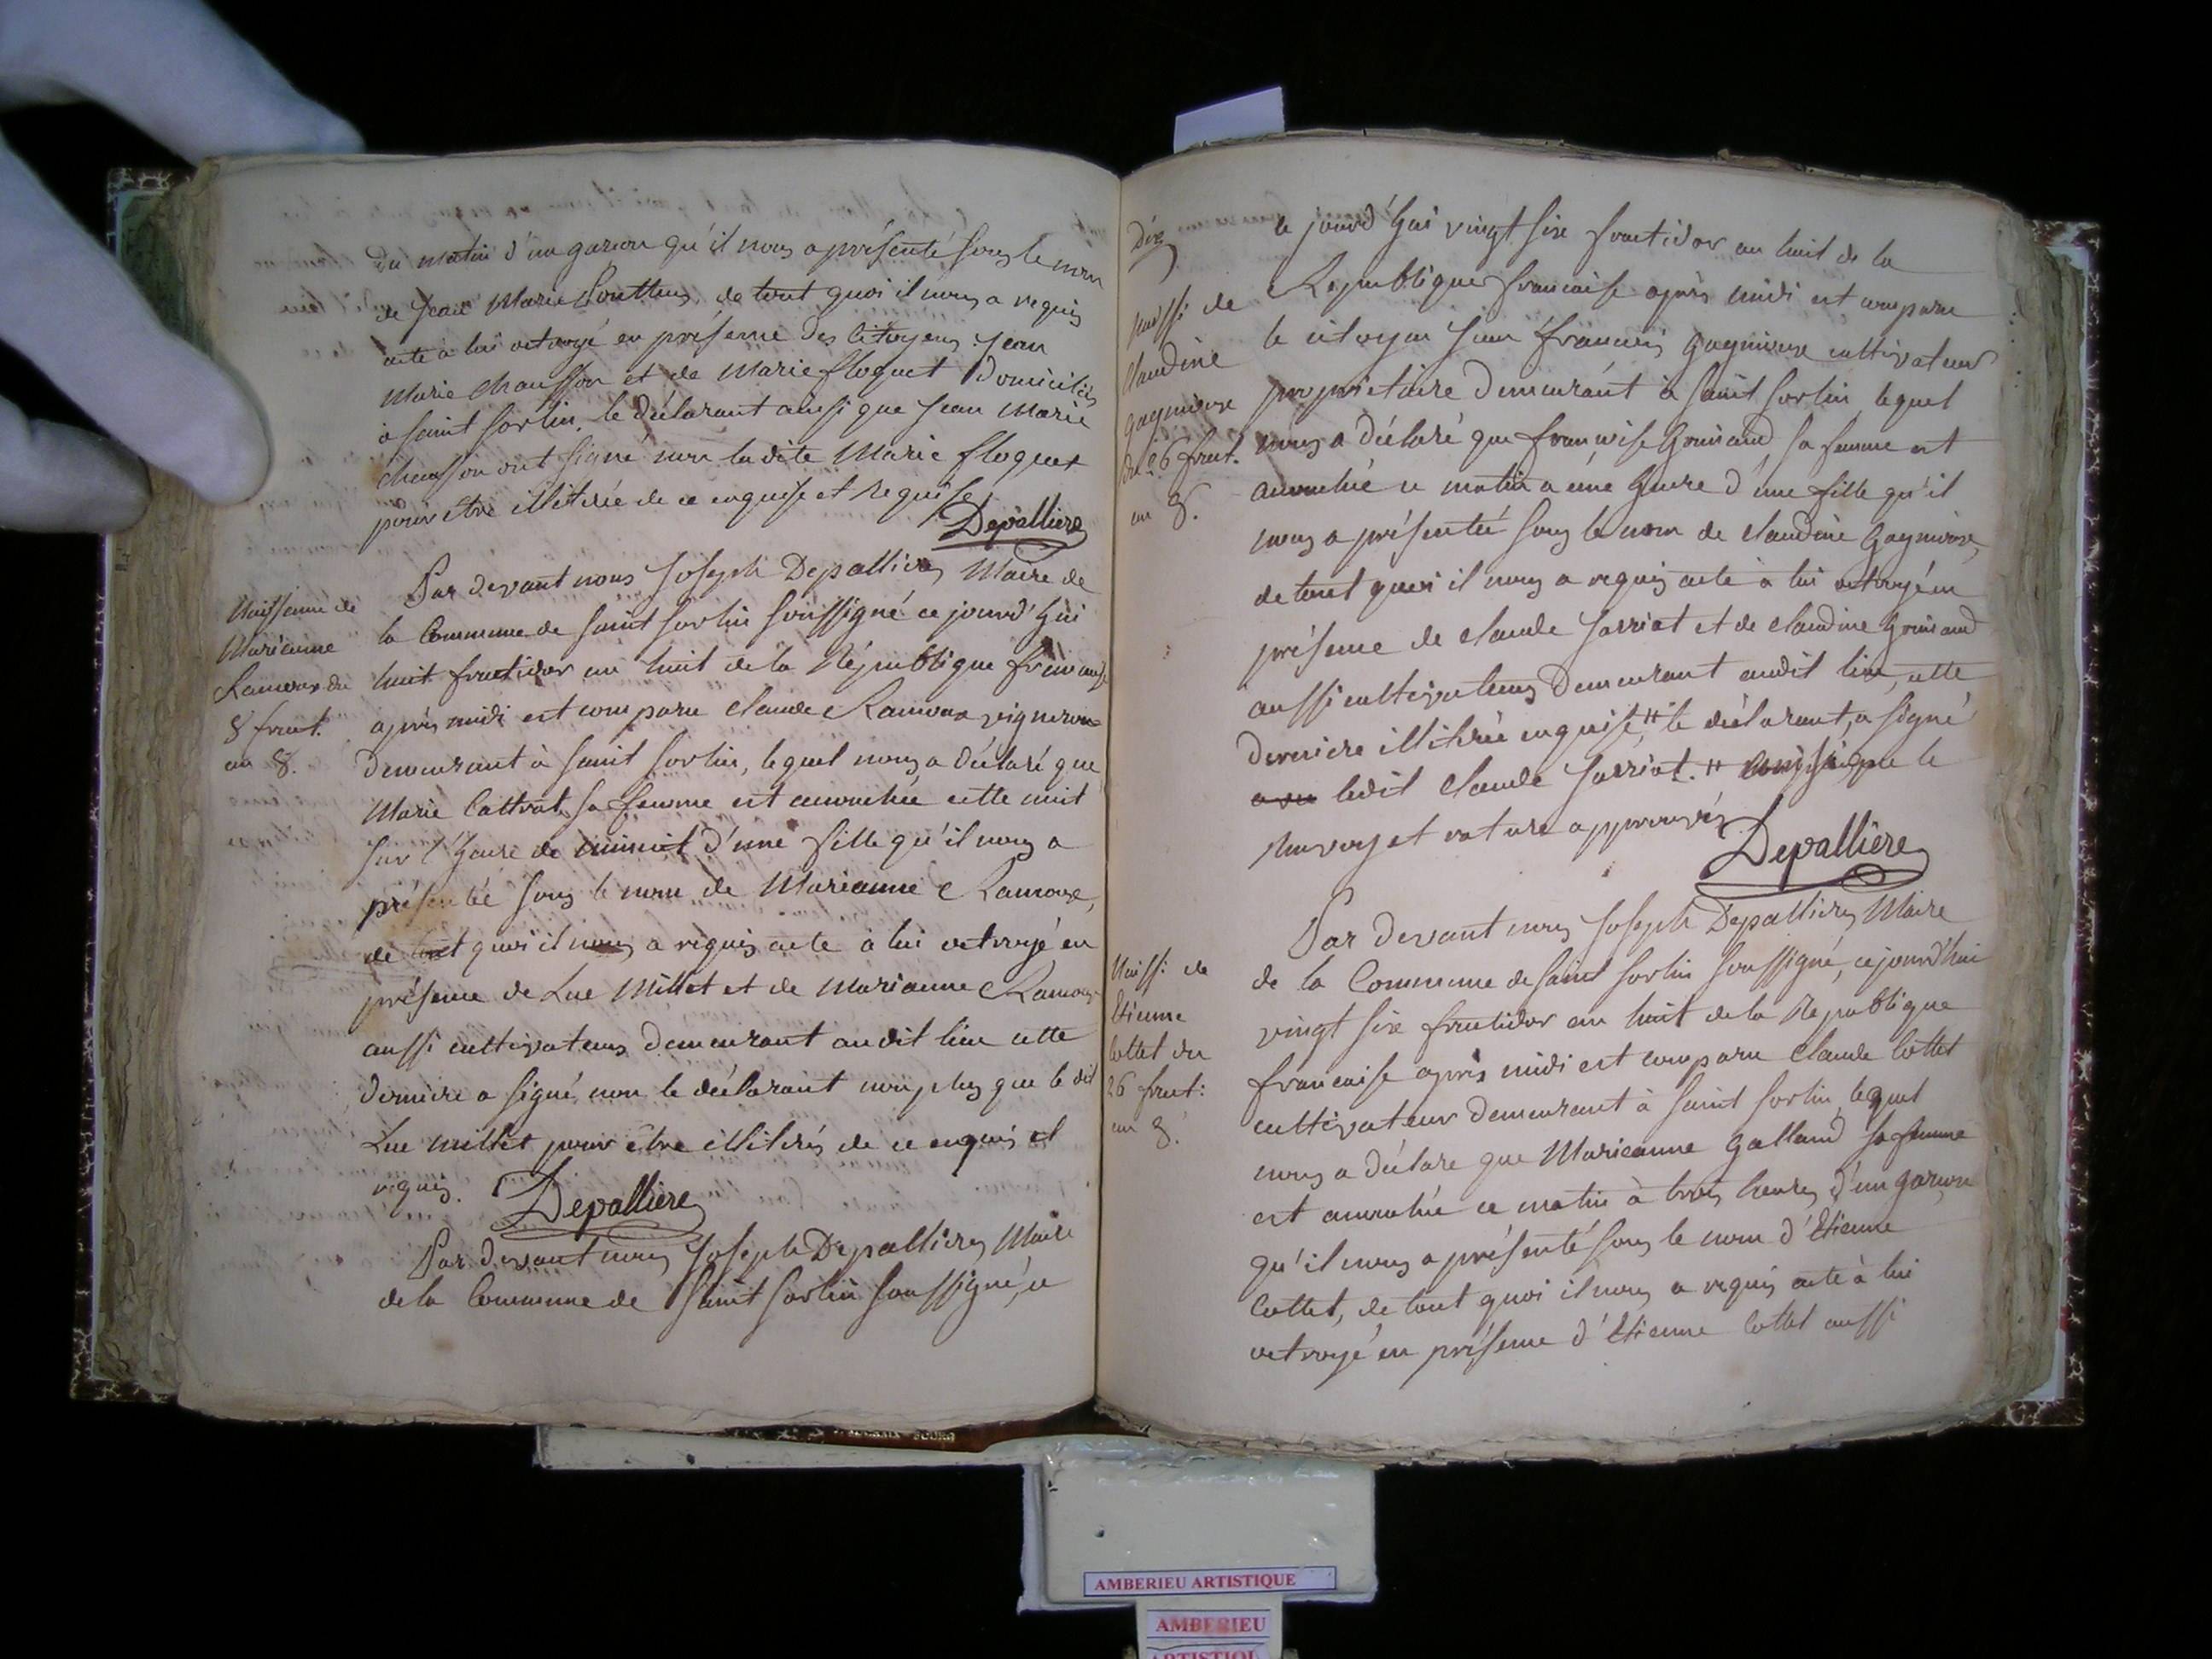 du matin d'un garcon qu'il nous a présenté sous le nom
de Jean Marie de tout quoi il nous a requis
acte a lui octroyé en présence des Citoyens Jean
Marie chausson et de Marie floquet domiciliés
à saint Sorlin, le déclarant ainsi que Jean Marie
chausson ont signé non la dite Marie floquet
pour etre illitérée de ce enquise et requise
Depallière
Naissance de
Marianne
Ramoux du
8 fruct.
an 8.
Par devant nous Joseph Depallière Maire de
la Commune de saint Sorlin soussigné ce jourd'hui
huit fructidor an huit de la République francaise
après midi est comparu claude Ramoux vigneron
demeurant à saint Sorlin, lequel nous a déclaré que
Marie sa femme est accouchée cette nuit
sur l'heure de minuit d'une fille qu'il nous a
présentée sous le nom de Marianne Ramoux,
de tout quoi il nous a requis acte à lui octroyé en
présence de Luc Millet et de Marianne Ramoux
aussi cultivateurs demeurant audit lieu cette
dernière a signé non le déclarant non plus que le dit
Luc millet pour être illitérés de ce enquis et
requis.
Depallière
Par devant nous Joseph Depallière Maire
de la Commune de Saint Sorlin soussigné, ce
Naiss: de
claudine
gagnieuse
du 26 fruct.
an 8.
jourd'hui vingt six fructidor an huit de la
République francaise après midi est comparu
le citoyen Jean francois gagnieux cultivateur
proprietaire demeurant à saint Sorlin lequel
nous a déclaré que francoise sa femme est
accouchée ce matin a une heure d'une fille qu'il
nous a présentée sous le nom de claudine
de tout quoi il nous a requis acte à lui octroyé en
présence de claude Sarriot et de claudine
aussi cultivateurs demeurant audit lieu, cette
derniere illitérée enquise, # le déclarant, a signé
ledit claude Sarriot. # ainsi que le
renvoy et rature approuvés
Depallière
Naiss: de
Etienne
Cottet du
26 fruct:
an 8.
Par devant nous Joseph Depallière Maire
de la Commune de Saint Sorlin soussigné, cejourd'hui
vingt six fructidor an huit de la République
francaise après midi est comparu Claude Cottet
cultivateur demeurant à saint Sorlin, lequel
nous a déclare que Marieanne galland sa femme
est accouchée ce matin à trois heures d'un garcon
qu'il nous a présenté sous le nom d'Etienne
Cottet, de tout quoi il nous a requis acte à lui
octroyé en présence d'Etienne Cottet aussi
AMBERIEU ARTISTIQUE
AMBERIEU
ARTISTIQUE